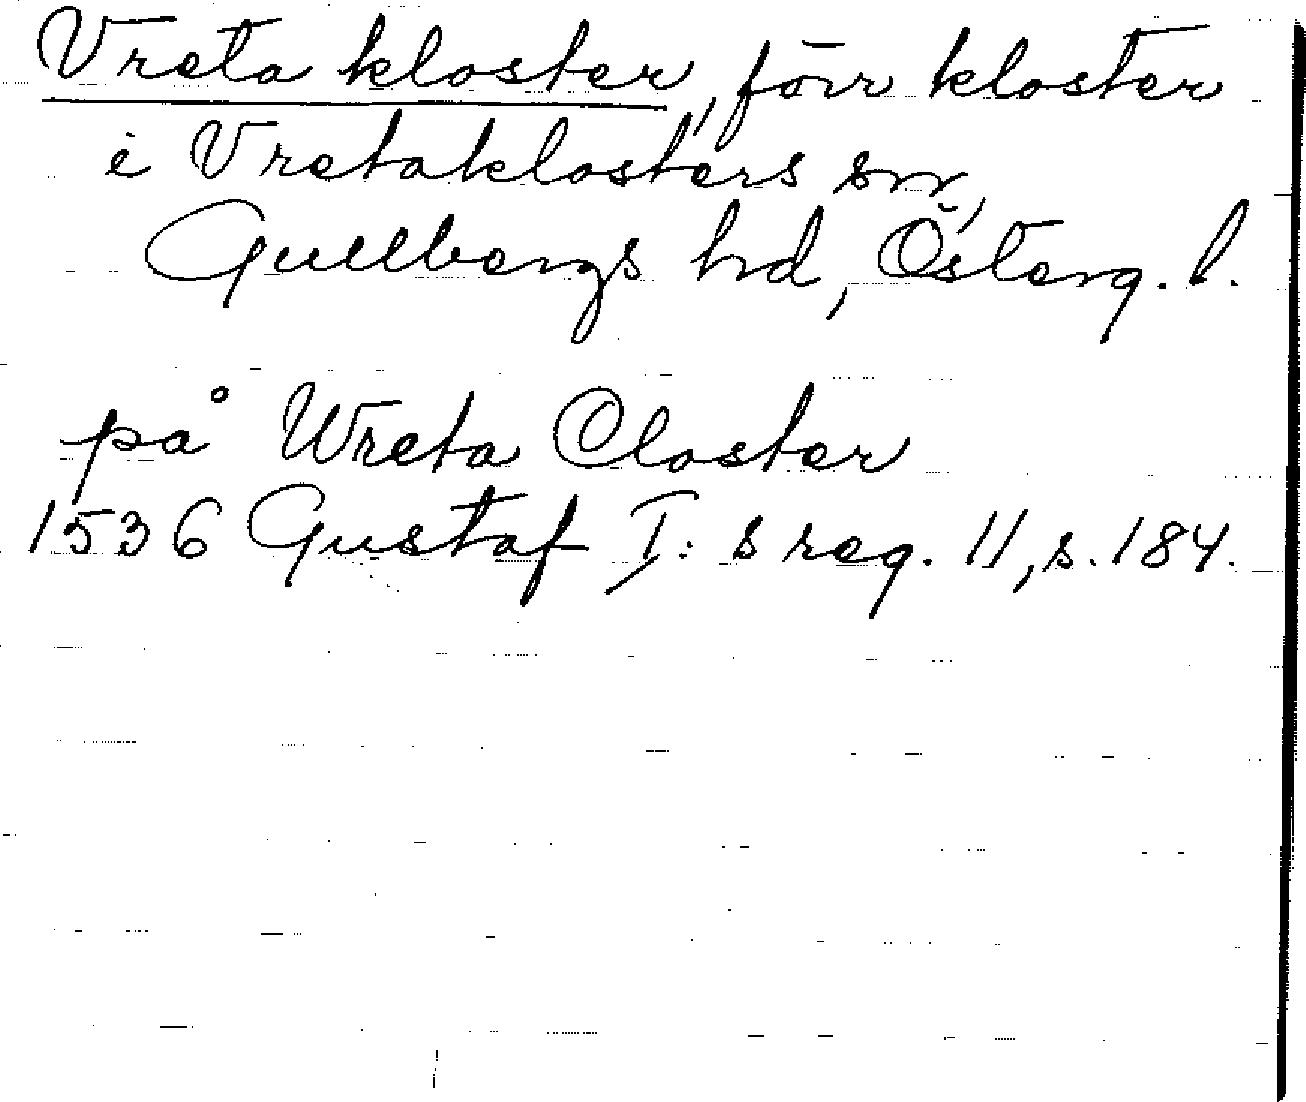 Vreta kloster, förr kloster
i Vretaklosters sn,
Gullbergs hd, Österg. l.
på Wreta Closter
1536 Gustaf I: s reg. 11, s. 184.